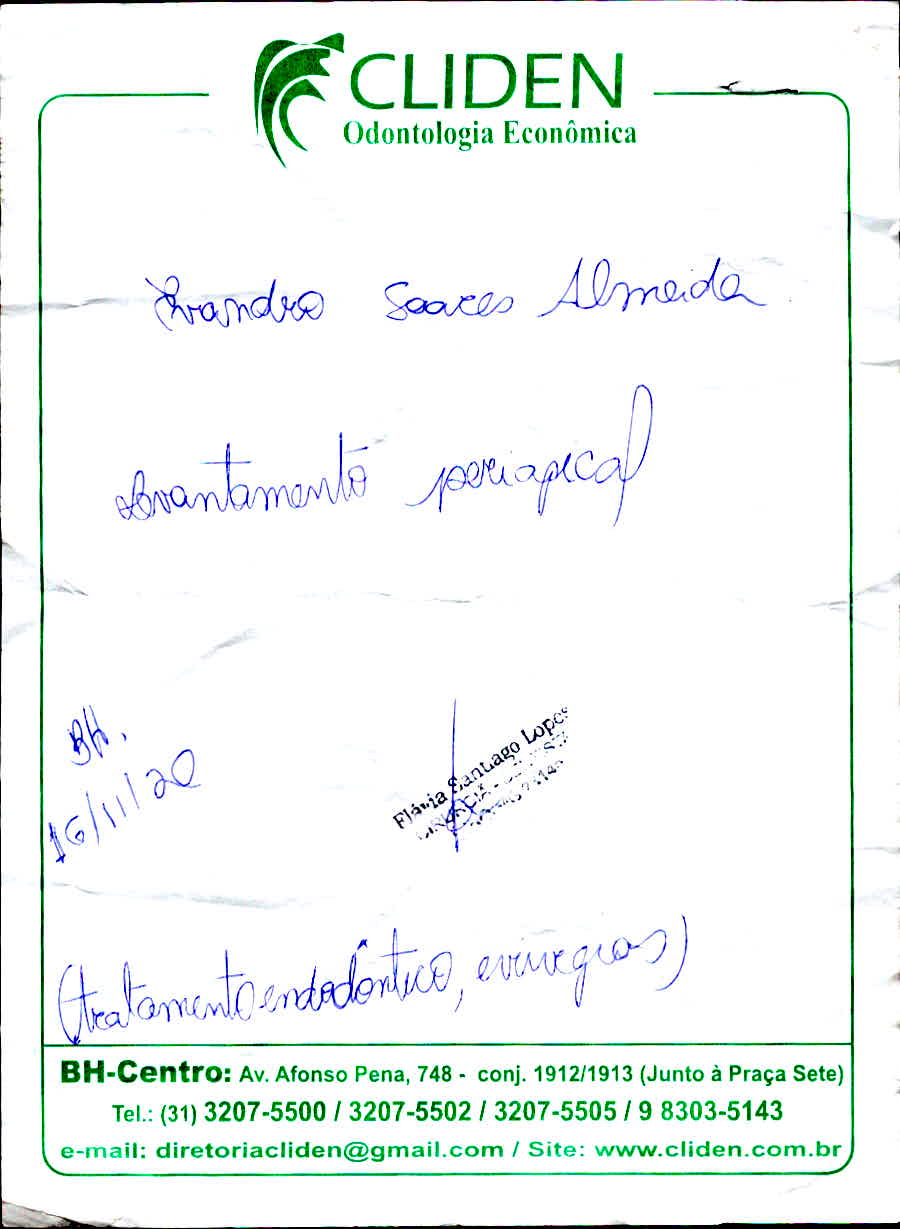 CLIDEN
Odontologia Econômica
Evandro Soares Almeida
Levantamento periapical
BH.
16/11/20
Flávia Santiago Lopes
(tratamento endodôntico, cirurgias)
BH-Centro: Av. Afonso Pena, 748 - conj. 1912/1913 (Junto à Praça Sete)
Tel.: (31) 3207-5500 / 3207-5502 / 3207-5505 / 9 8303-5143
e-mail: diretoriacliden@gmail.com / Site: www.cliden.com.br